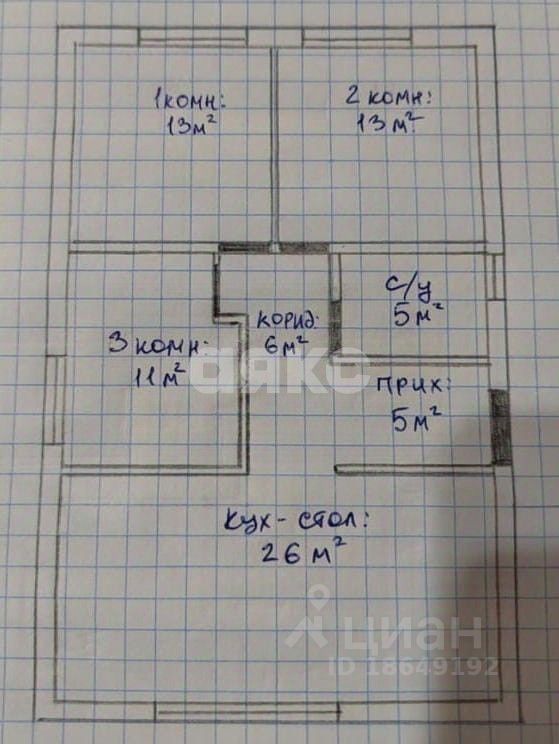 1 комн:
13м²
2 комн:
13м²
с/у
5м²
корид:
6м²
3 комн:
11м²
аякс
прих:
5м²
кух-стол:
26м²
циан
ID 18649192